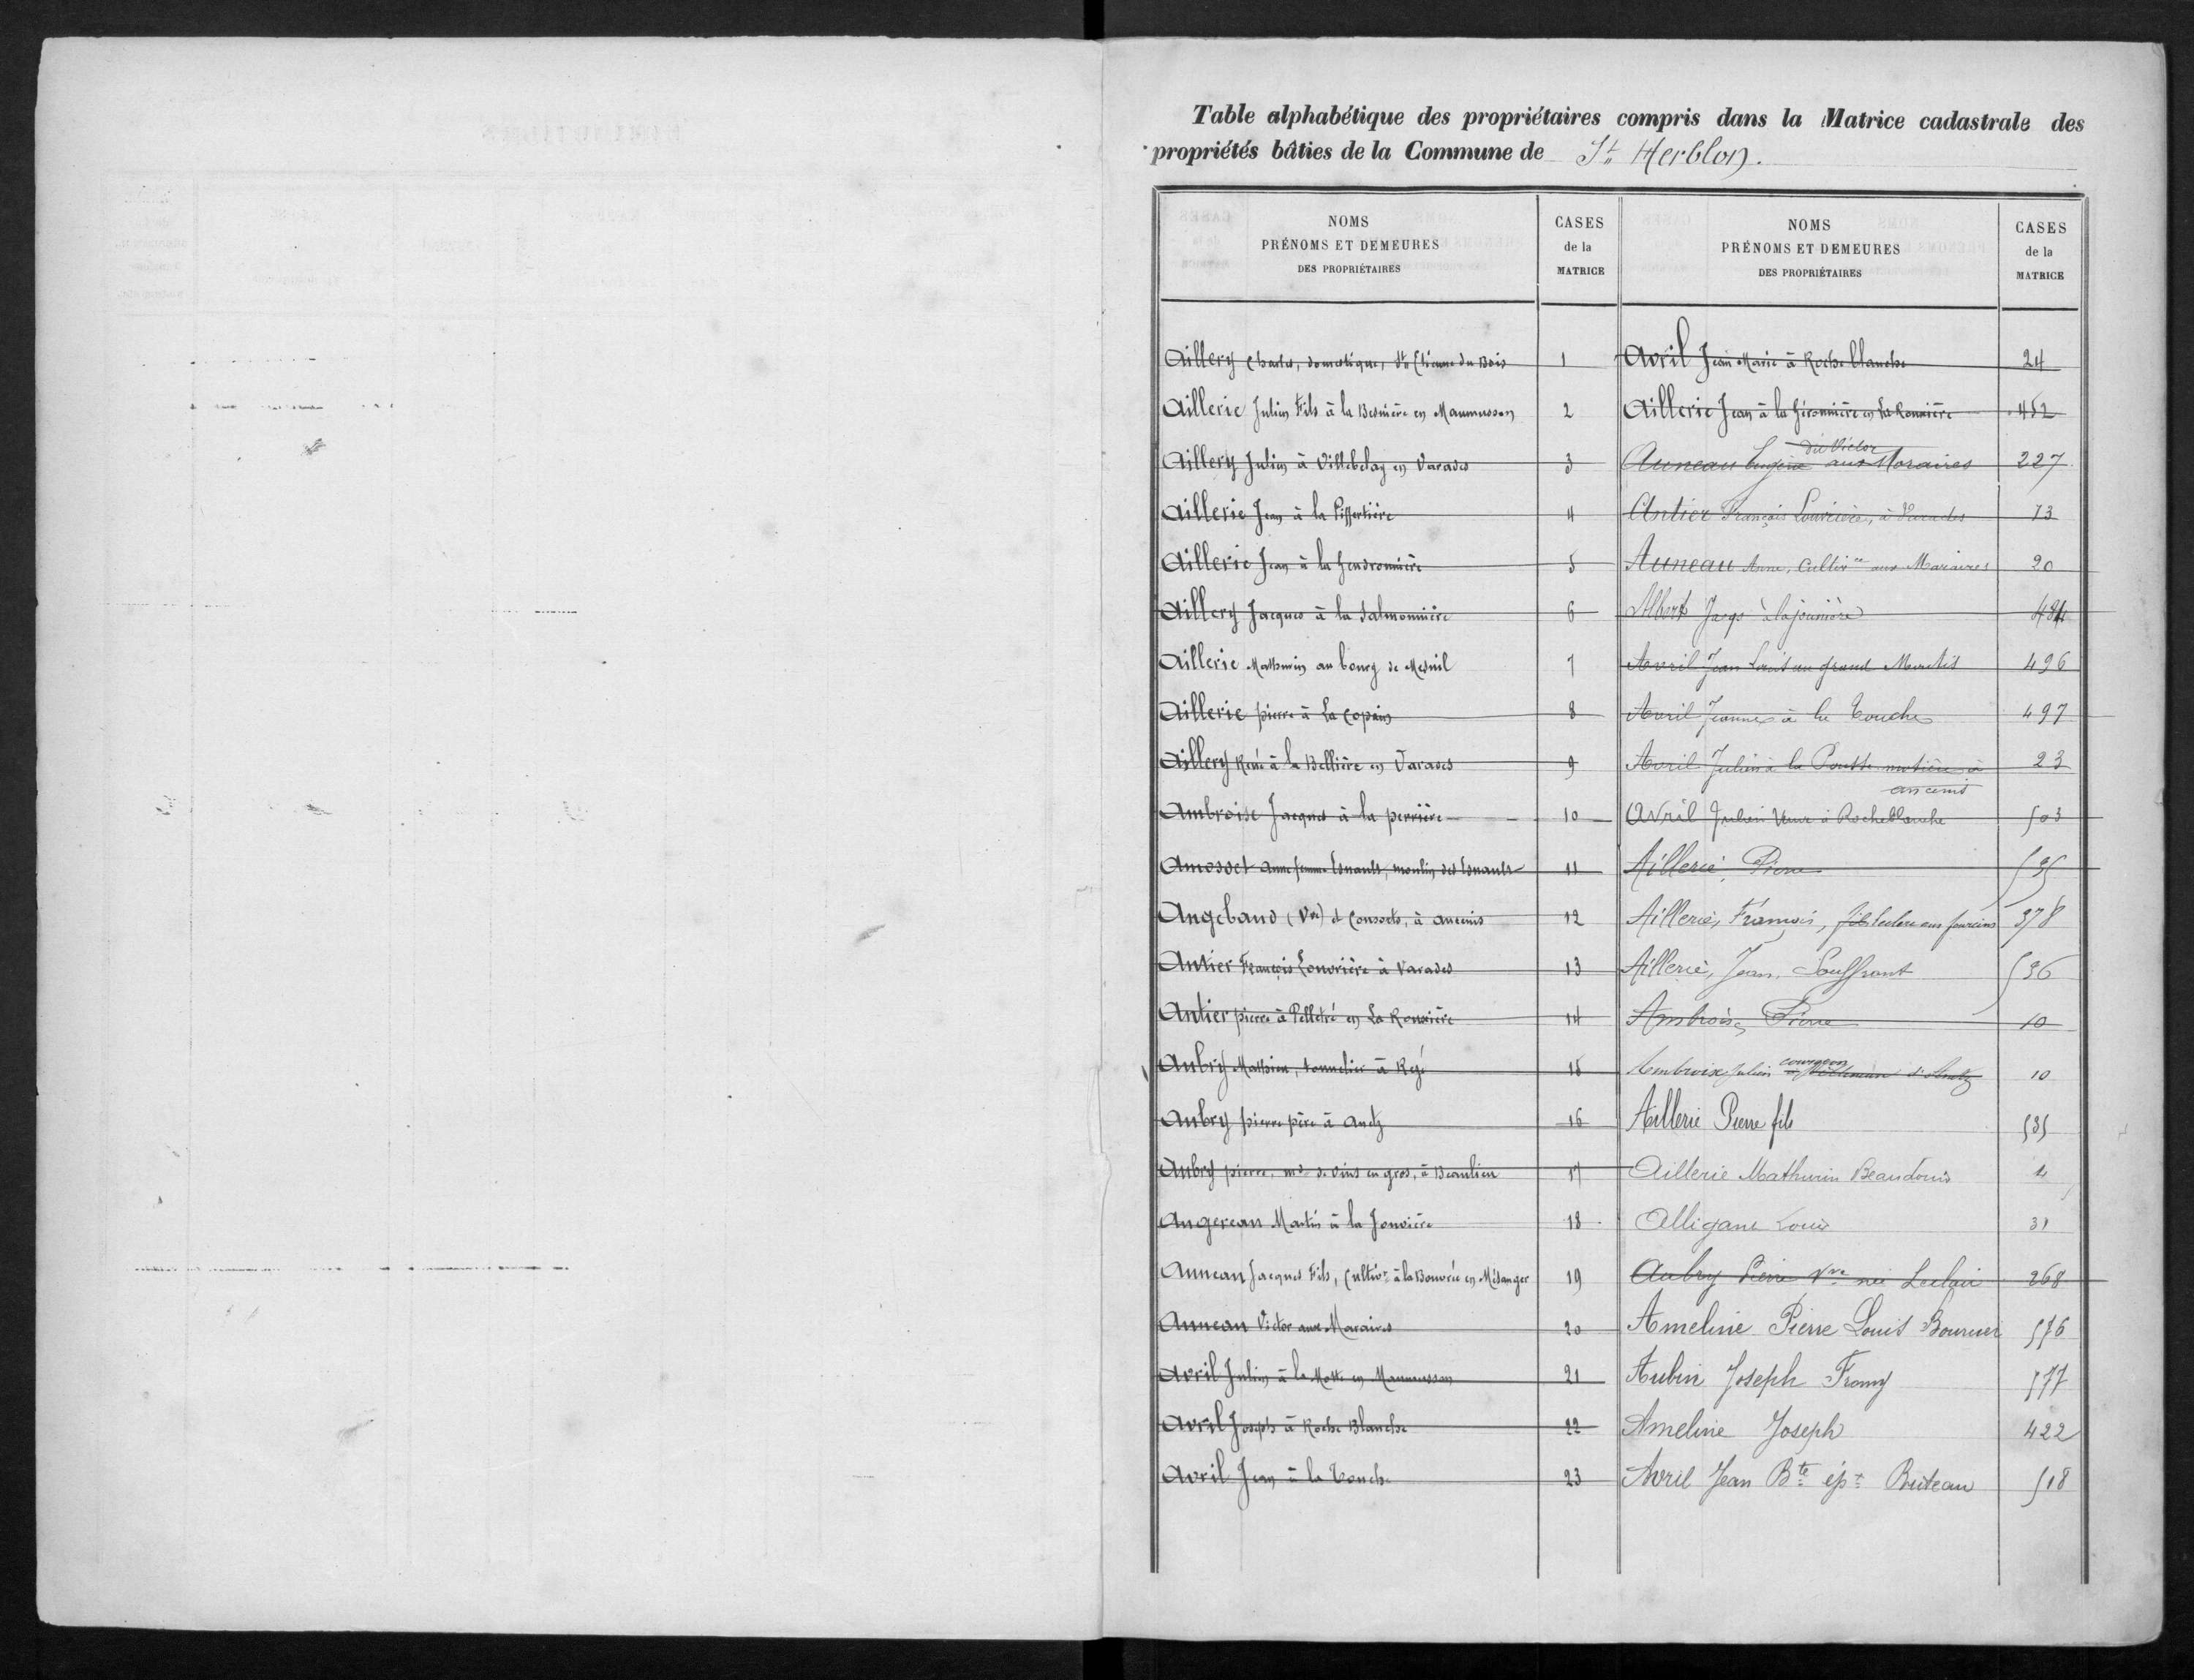 Table alphabétique des propriétaires compris dans la Matrice cadastrale des
propriétés bâties de la Commune de St Herblon.
NOMS
PRÉNOMS ET DEMEURES
DES PROPRIÉTAIRES
CASES
de la
MATRICE
Aillery Charles, domestique, St Etienne du Bois 1
Aillerie Julien Fils à la Besnière en Maumusson 2
Aillery Julien à Villebelay en Varades 3
Aillerie Jean à la Piffertière 4
Aillerie Jean à la Gendronnière 5
Aillery Jacques à la Salmonnière 6
Aillerie Mathurin au bourg de Mesnil 7
Aillerie pierre à La Copain 8
Aillery René à la Bellière en Varades 9
Ambroise Jacques à la perrière 10
Amosset Anne femme Esnault, moulin des Esnault 11
Angebaud (Vve) et Consorts, à ancenis 12
Antier François Louvrière à Varades 13
Antier pierre à Pelletré en La Rouxière 14
Aubry Mathieu, tonnelier à Rezé 15
Aubry pierre père à Anetz 16
Aubry pierre, md de vins en gros, à Beaulieu 17
Angereau Martin à la Jonvière 18
Auneau Jacques Fils, Cultivr à la Bouvrée en Mésanger 19
Auneau Victor aux Maraires 20
Avril Julien à la Motte en Maumusson 21
Avril Joseph à Roche Blanche 22
Avril Jean à la Touche 23
NOMS
PRÉNOMS ET DEMEURES
DES PROPRIÉTAIRES
CASES
de la
MATRICE
Avril Jean Marie à Roche blanche 24
Aillerie Jean à la Gironnière en La Rouxière 452
dit Victor
Auneau Eugène aux Moraires 227
Antier François Louvrière, à Varades 13
Auneau Anne, Cultivce aux Maraires 20
Albert Jacqs à la jounière 484
Avril Jean Louis au grand Marchis 496
Avril Jeanne à la Touche 497
Avril Julien à la Poussemotière à 23
ancenis
Avril Julien Veuve à Rocheblanche 503
Aillerie Pierre 535
Aillerie, François, fils 378
Aillerie, Jean, Souffrant 536
Ambroise Pierre 10
Ambroise Julien 10
Aillerie Pierre fils 535
Aillerie Mathurin Beaudouin 4
Alligand Louis 31
Aubry Pierre Vve née Leclair 268
Ameline Pierre Louis Bourcier 576
Aubin Joseph Fromy 577
Ameline Joseph 422
Avril Jean Bte ép: Bruteau 518